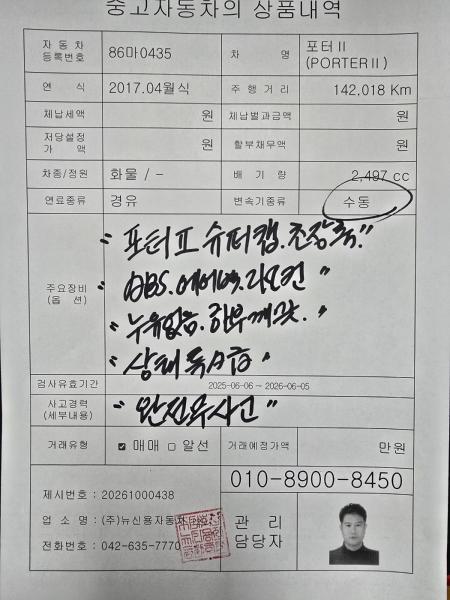 중고자동차의 상품내역
자동차 등록번호 86마0435 차 명 포터Ⅱ (PORTERⅡ)
연 식 2017.04월식 주 행 거 리 142,018 Km
체납세액 원 체납벌과금액 원
저당설정 가 액 원 할부채무액 원
차종/정원 화물 / - 배 기 량 2,497 cc
연료종류 경유 변속기종류 수동
주요장비 (옵 션)
" 포터Ⅱ 슈퍼캡.초장축."
" ABS.에어백.리모컨 "
" 누유없음.하부깨끗. "
" 상태 특A급 "
검사유효기간 2025-06-06 ~ 2026-06-05
사고경력 (세부내용) " 완전무사고 "
거래유형 ☑ 매매 □ 알선 거래예정가액 만원
010-8900-8450
제시번호 : 20261000438
업 소 명 : (주)뉴신용자동차
전화번호 : 042-635-7770
관 리 담당자